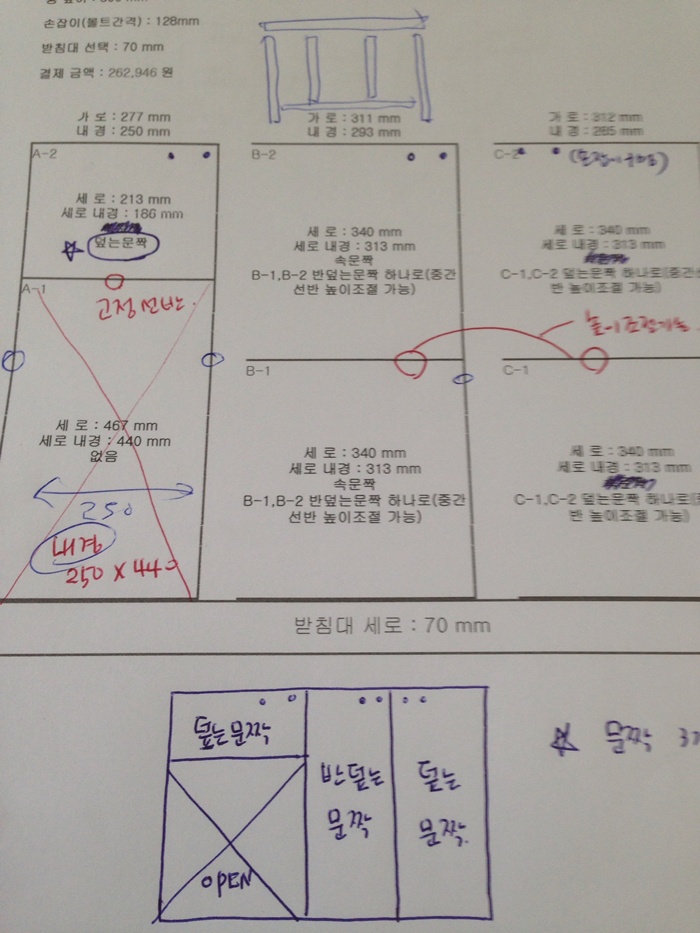 손잡이(볼트간격) : 128mm
받침대 선택 : 70 mm
결제 금액 : 262,946 원
가 로 : 277 mm
내 경 : 250 mm
가 로 : 311 mm
내 경 : 293 mm
가 로 : 312 mm
내 경 : 285 mm
A-2
B-2
C-2
세 로 : 213 mm
세로 내경 : 186 mm
덮는문짝
세 로 : 340 mm
세로 내경 : 313 mm
속문짝
B-1,B-2 반덮는문짝 하나로(중간
선반 높이조절 가능)
세 로 : 340 mm
세로 내경 : 313 mm
C-1,C-2 덮는문짝 하나로(중간
반 높이조절 가능)
A-1
고정선반
높이조절가능
B-1
C-1
세 로 : 467 mm
세로 내경 : 440 mm
없음
250
내경
250 X 440
세 로 : 340 mm
세로 내경 : 313 mm
속문짝
B-1,B-2 반덮는문짝 하나로(중간
선반 높이조절 가능)
세 로 : 340 mm
세로 내경 : 313 mm
C-1,C-2 덮는문짝 하나로(
반 높이조절 가능)
받침대 세로 : 70 mm
덮는문짝
반덮는
문짝
덮는
문짝.
문짝 3